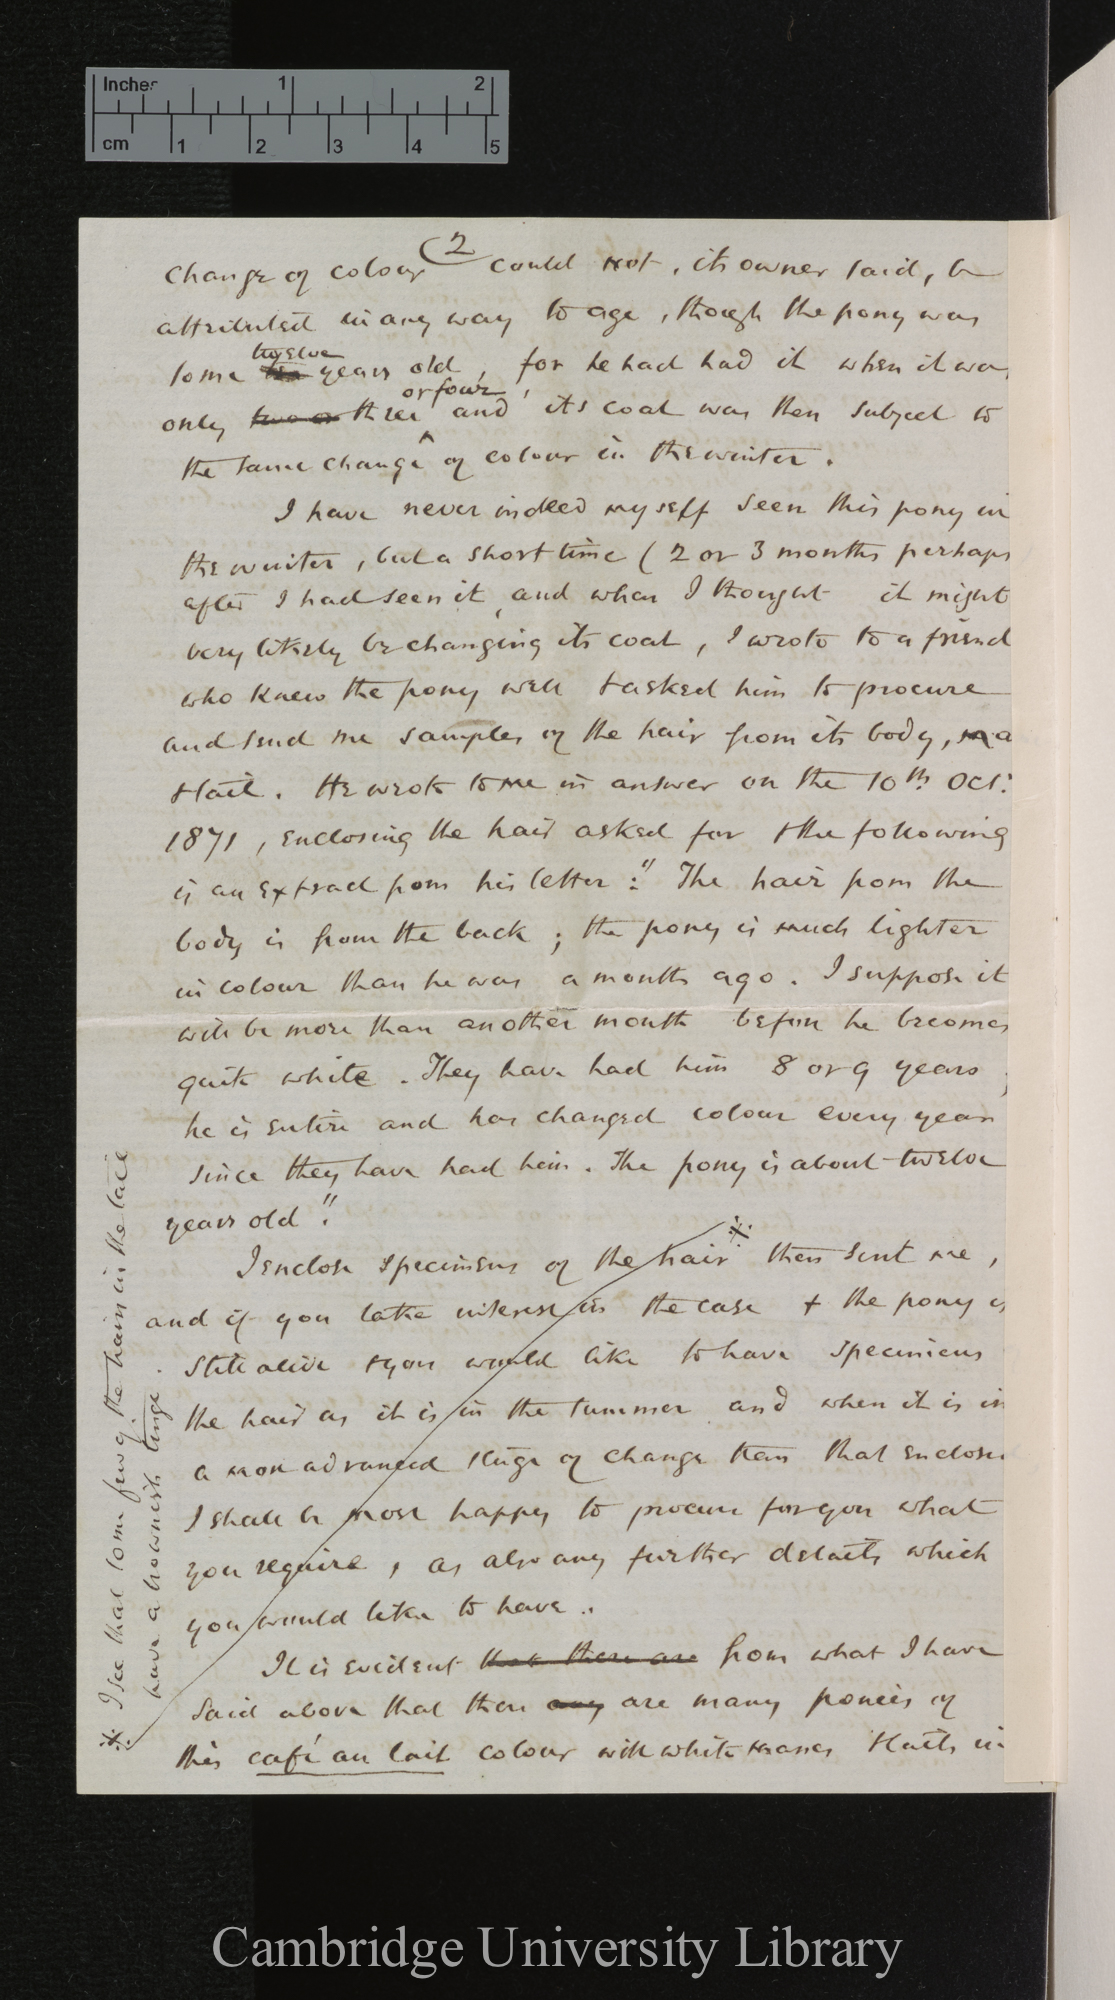 Inches 1 2
cm 1 2 3 4 5
(2
change of colour could not, its owner said, be
attributed in any way to age, though the pony was
some ten twelve years old, for he had had it when it was
only two or three or four, and its coat was then subject to
the same change of colour in the winter.
I have never indeed myself seen this pony in
the winter, but a short time (2 or 3 months perhaps
after I had seen it, and when I thought it might
very likely be changing its coat, I wrote to a friend
who knew the pony well & asked him to procure
and send me samples of the hair from its body, ma
& tail. He wrote to me in answer on the 10th. Oct:
1871, enclosing the hair asked for & the following
is an extract from his letter: "The hair from the
body is from the back; the pony is much lighter
in colour than he was a month ago. I suppose it
will be more than another month before he becomes
quite white. They have had him 8 or 9 years;
he is entire and has changed colour every year
since they have had him. The pony is about twelve
years old".
I enclose specimens of the hair※ then sent me,
and if you take interest in the case & the pony is
still alive & you would like to have specimens
the hair as it is in the summer and when it is in
a more advanced stage of change than that enclose
I shall be most happy to procure for you what
you require, as also any further details which
you would like to have.
It is evident that there are from what I have
said above that there any are many ponies of
this café au lait colour with white manes & tails in
※ I see that some few of the hairs in the tail
have a brownish tinge.
Cambridge University Library